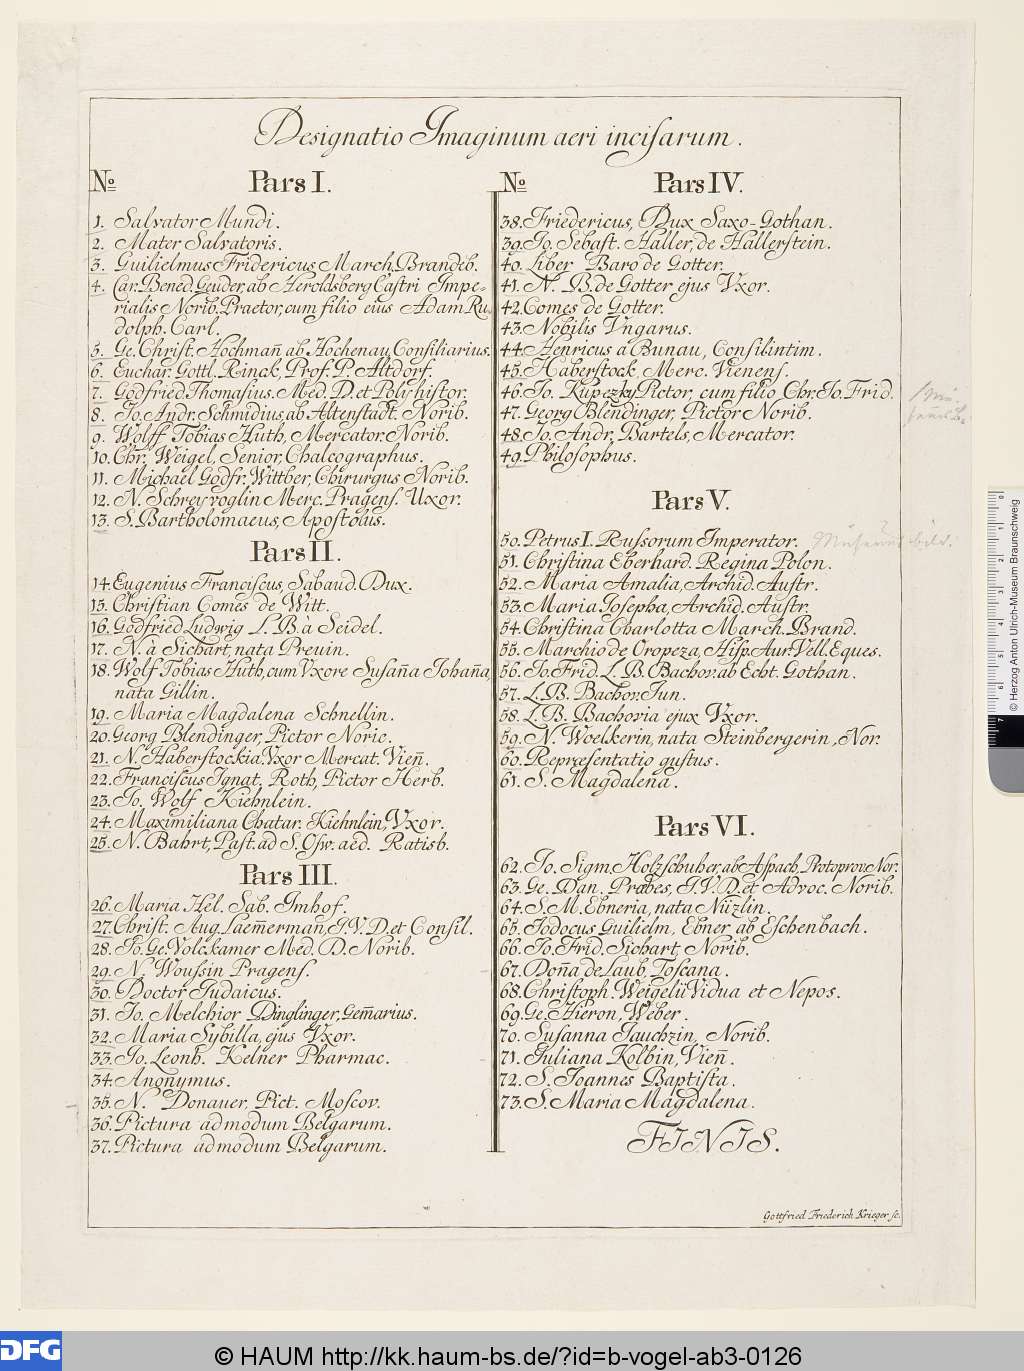 Designatio Imaginum aeri inciſarum.
No
Pars I.
1. Salvator Mundi.
2. Mater Salvatoris.
3. Guilielmus Fridericus March. Brandeb.
4. Car. Bened. Geuder, ab Heroldsberg Caſtri Impe-
rialis Norib. Praetor, cum filio eius Adam Ru-
dolph. Carl.
5. Ge. Chriſt. Hochman̄ ab Hochenau, Conſiliarius.
6. Euchar. Gottl. Rinck, Prof. P. Altdorf.
7. Godfried Thomaſius. Med. D. et Polyhiſtor.
8. Jo. Andr. Schmidius, ab Altenſtadt. Norib.
9. Wolff Tobias Huth, Mercator. Norib.
10. Chr. Weigel, Senior, Chalcographus.
11. Michael Godfr. Wittber, Chirurgus Norib.
12. N. Schreyvoglin Merc. Pragenſ. Uxor.
13. S. Bartholomaeus, Apoſtolus.
Pars II.
14. Eugenius Franciſcus, Sabaud. Dux.
15. Chriſtian Comes de Witt.
16. Godfried Ludwig L. B. à Seidel.
17. N. à Sichart, nata Preuin.
18. Wolf Tobias Huth, cum Vxore Suſan̄a Johan̄a,
nata Gillin.
19. Maria Magdalena Schnellin.
20. Georg Blendinger, Pictor Noric.
21. N. Haberſtockia. Vxor Mercat. Vien̄.
22. Franciſcus Ignat, Roth, Pictor Herb.
23. Jo. Wolf Kiehnlein.
24. Maximiliana Chatar. Kiehnlein, Vxor.
25. N. Bahrt, Paſt. ad S. Oſw. aed. Ratisb.
Pars III.
26. Maria Hel. Sab. Imhof.
27. Chriſt. Aug. Laem̄erman̄, I. V. D. et Conſil.
28. Jo. Ge. Volckamer Med. D. Norib.
29. N. Wouſsin Pragenſ.
30. Doctor Judaicus.
31. Jo. Melchior Dinglinger, Gem̄arius.
32. Maria Sybilla, ejus Vxor.
33. Jo. Leonh. Kelner Pharmac.
34. Anonymus.
35. N. Donauer, Pict. Moſcov.
36. Pictura admodum Belgarum.
37. Pictura admodum Belgarum.
No
Pars IV.
38. Friedericus, Dux Saxo-Gothan.
39. Jo. Sebaſt. Haller, de Hallerſtein.
40. Liber Baro de Gotter.
41. N. B. de Gotter ejus Vxor.
42. Comes de Gotter.
43. Nobilis Vngarus.
44. Henricus a Bunau, Conſil. intim.
45. Haberſtock, Merc. Vienenſ.
46. Jo. Kupezky Pictor, cum filio, Chr. Jo. Frid.
47. Georg Blendinger, Pictor Norib.
48. Jo. Andr, Bartels, Mercator.
49. Philoſophus.
Pars V.
50. Petrus I. Ruſsorum Imperator.
51. Chriſtina Eberhard. Regina Polon.
52. Maria Amalia, Archid. Auſtr.
53. Maria Joſepha, Archid. Auſtr.
54. Chriſtina Charlotta March. Brand.
55. Marchio de Oropeza, Hiſp. Aur. Vell. Eques.
56. Jo. Frid. L. B. Bachov. ab Echt. Gothan.
57. L. B. Bachov. Jun.
58. L. B. Bachovia ejux Vxor.
59. N. Woelkerin, nata Steinbergerin, Nor.
60. Repræſentatio guſtus.
61. S. Magdalena.
Pars VI.
62. Jo. Sigm. Holzſchuher, ab Aſpach, Protoprov. Nor.
63. Ge. Dan. Præbes, I. V. D. et Advoc. Norib.
64. S. M. Ebneria, nata Nüzlin.
65. Jodocus Guilielm, Ebner ab Eſchenbach.
66. Jo. Frid. Sichart, Norib.
67. Don̄a de Laub, Toſcana.
68. Chriſtoph. Weigelii Vidua et Nepos.
69. Ge. Hieron, Weber.
70. Suſanna Jauchzin, Norib.
71. Juliana Kolbin, Vien̄.
72. S. Joannes Baptiſta.
73. S. Maria Magdalena.
FINIS.
Gottfried Friederich Krieger ſc.
© Herzog Anton Ulrich-Museum Braunschweig
DFG
© HAUM http://kk.haum-bs.de/?id=b-vogel-ab3-0126